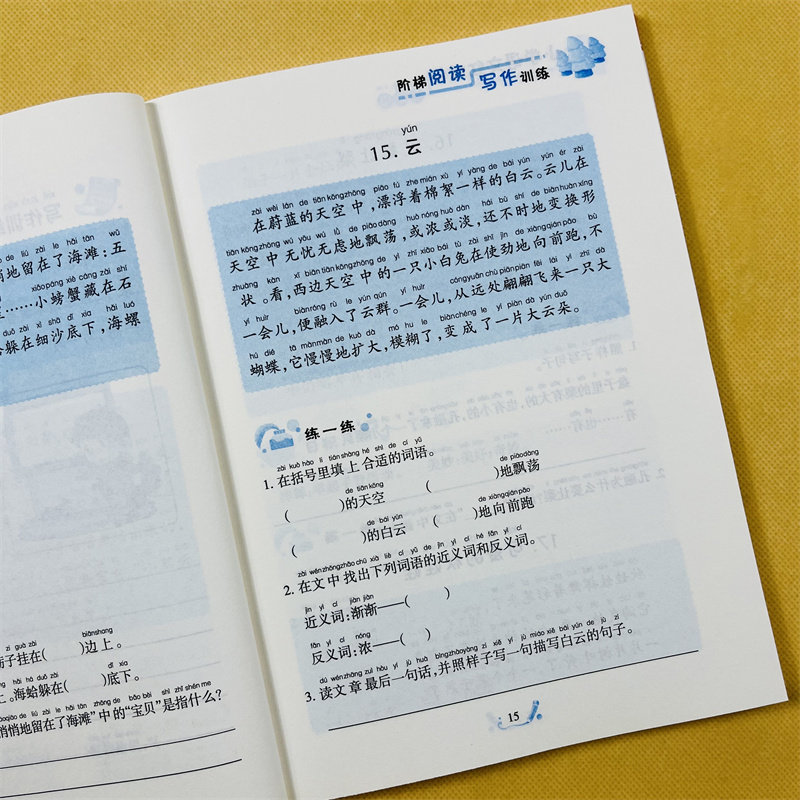 地留在了海滩:五
……小螃蟹藏在石
躲在细沙底下,海螺
子挂在(　　)边上。
。海蛤躲在(　　)底下。
悄悄地留在了海滩”中的“宝贝”是指什么?
阶梯阅读写作训练
yún
15. 云
zài wèi lán de tiān kōng zhōng piāo fú zhe mián xù yí yàng de bái yún yún ér zài
在蔚蓝的天空中,漂浮着棉絮一样的白云。云儿在
tiān kōng zhōng wú yōu wú lǜ de piāo dàng huò nóng huò dàn hái bù shí de biàn huàn xíng
天空中无忧无虑地飘荡,或浓或淡,还不时地变换形
zhuàng kàn xī biān tiān kōng zhōng de yì zhī xiǎo bái tù zài shǐ jìn de xiàng qián pǎo bù
状。看,西边天空中的一只小白兔在使劲地向前跑,不
yí huìr biàn róng rù le yún qún yí huìr cóng yuǎn chù piān piān fēi lái yì zhī dà
一会儿,便融入了云群。一会儿,从远处翩翩飞来一只大
hú dié tā màn màn de kuò dà mó hu le biàn chéng le yí piàn dà yún duǒ
蝴蝶,它慢慢地扩大,模糊了,变成了一片大云朵。
练一练
zài kuò hào lǐ tián shàng hé shì de cí yǔ
1. 在括号里填上合适的词语。
de tiān kōng de piāo dàng
(　　)的天空 (　　)地飘荡
de bái yún de xiàng qián pǎo
(　　)的白云 (　　)地向前跑
zài wén zhōng zhǎo chū xià liè cí yǔ de jìn yì cí hé fǎn yì cí
2. 在文中找出下列词语的近义词和反义词。
jìn yì cí jiàn jiàn
近义词:渐渐——(　　)
fǎn yì cí nóng
反义词:浓——(　　)
dú wén zhāng zuì hòu yí jù huà bìng zhào yàng zi xiě yí jù miáo xiě bái yún de jù zi
3. 读文章最后一句话,并照样子写一句描写白云的句子。
15